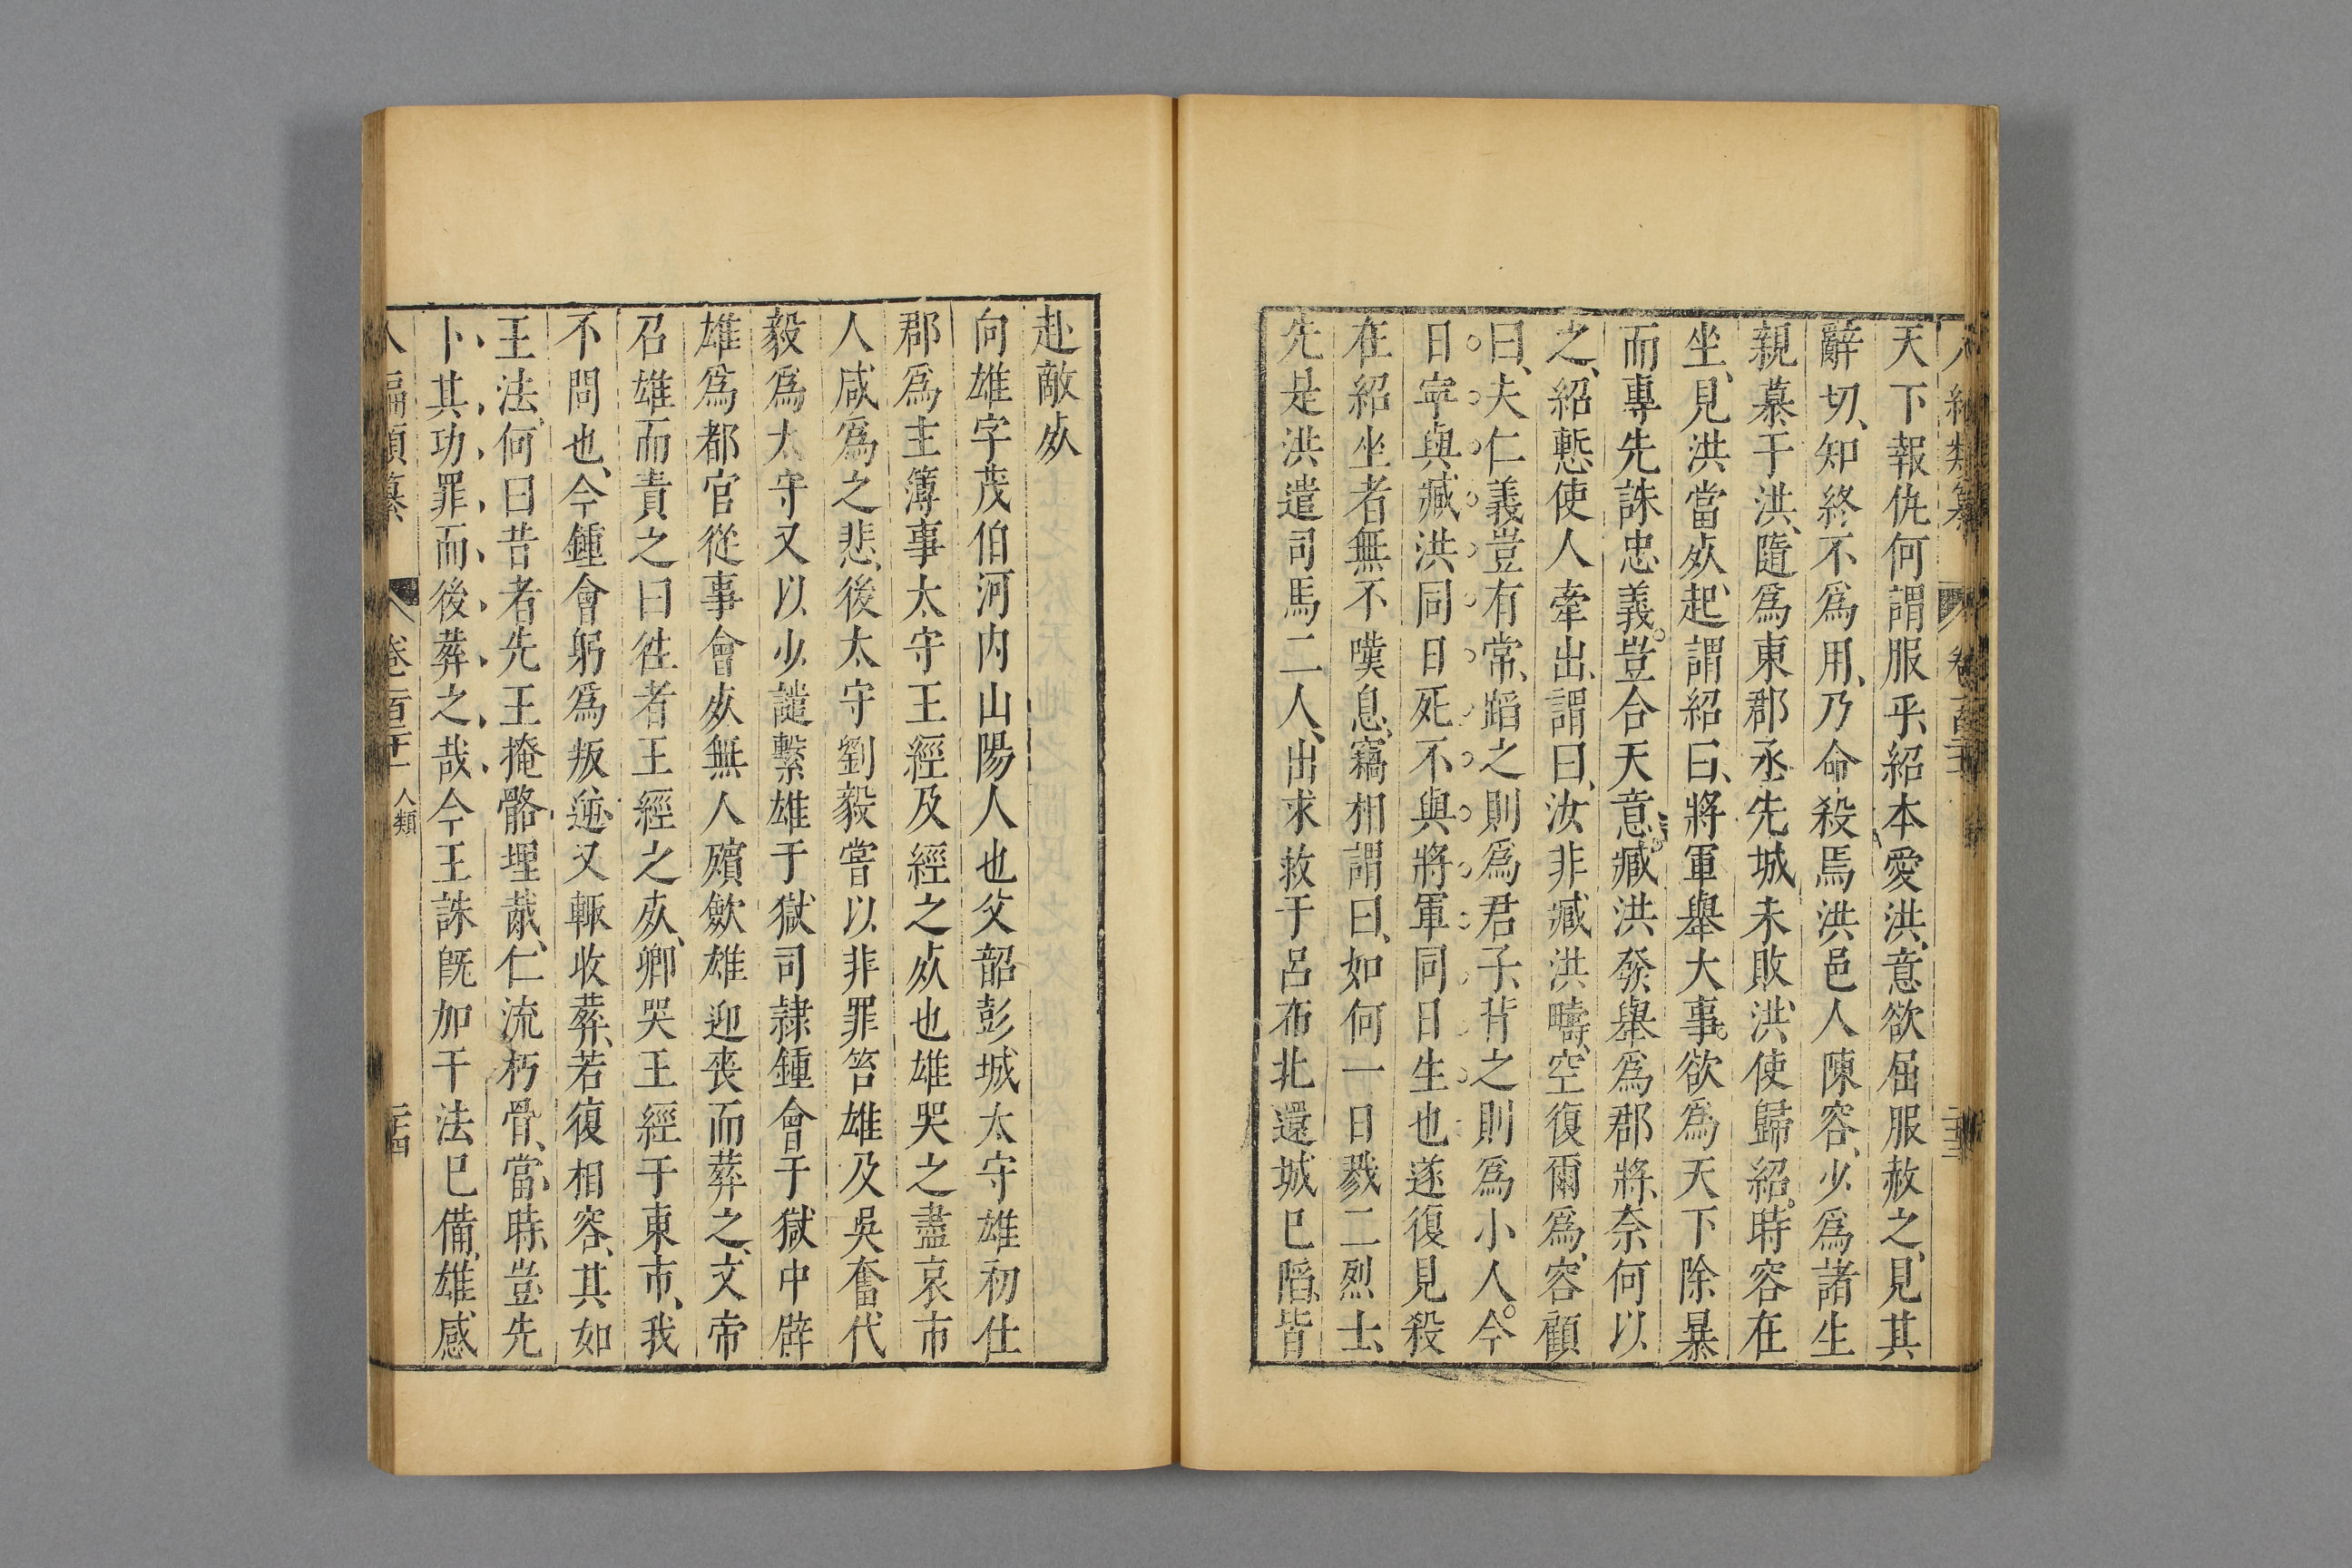 天下報仇何謂服乎紹本愛洪意欲屈服赦之見其
辭切知終不爲用乃命殺焉洪邑人陳容少爲諸生
親慕于洪隨爲東郡丞先城未敗洪使歸紹時容在
坐見洪當歾起謂紹曰將軍舉大事欲爲天下除暴
而專先誅忠義豈合天意臧洪發舉爲郡將奈何以
之紹慙使人牽出謂曰汝非臧洪疇空復爾爲容顧
曰夫仁義豈有常蹈之則爲君子背之則爲小人今
日寧與臧洪同日死不與將軍同日生也遂復見殺
在紹坐者無不嘆息竊相謂曰如何一日戮二烈士
先是洪遣司馬二人出求救于呂布北還城已陷皆
赴敵歾
向雄字茂伯河内山陽人也父韶彭城太守雄初仕
郡爲主簿事太守王經及經之歾也雄哭之盡哀市
人咸爲之悲後太守劉毅嘗以非罪笞雄及吳奮代
毅爲太守又以少譴繫雄于獄司隸鍾會于獄中辟
雄爲都官從事會歾無人殯歛雄迎喪而葬之文帝
召雄而責之曰徃者王經之歾卿哭王經于東市我
不問也今鍾會躬爲叛逆又輒收葬若復相容其如
王法何曰昔者先王掩骼埋胔仁流朽骨當時豈先
卜其功罪而後葬之哉今王誅旣加于法已備雄感
卷一百二十一 人類 二十四